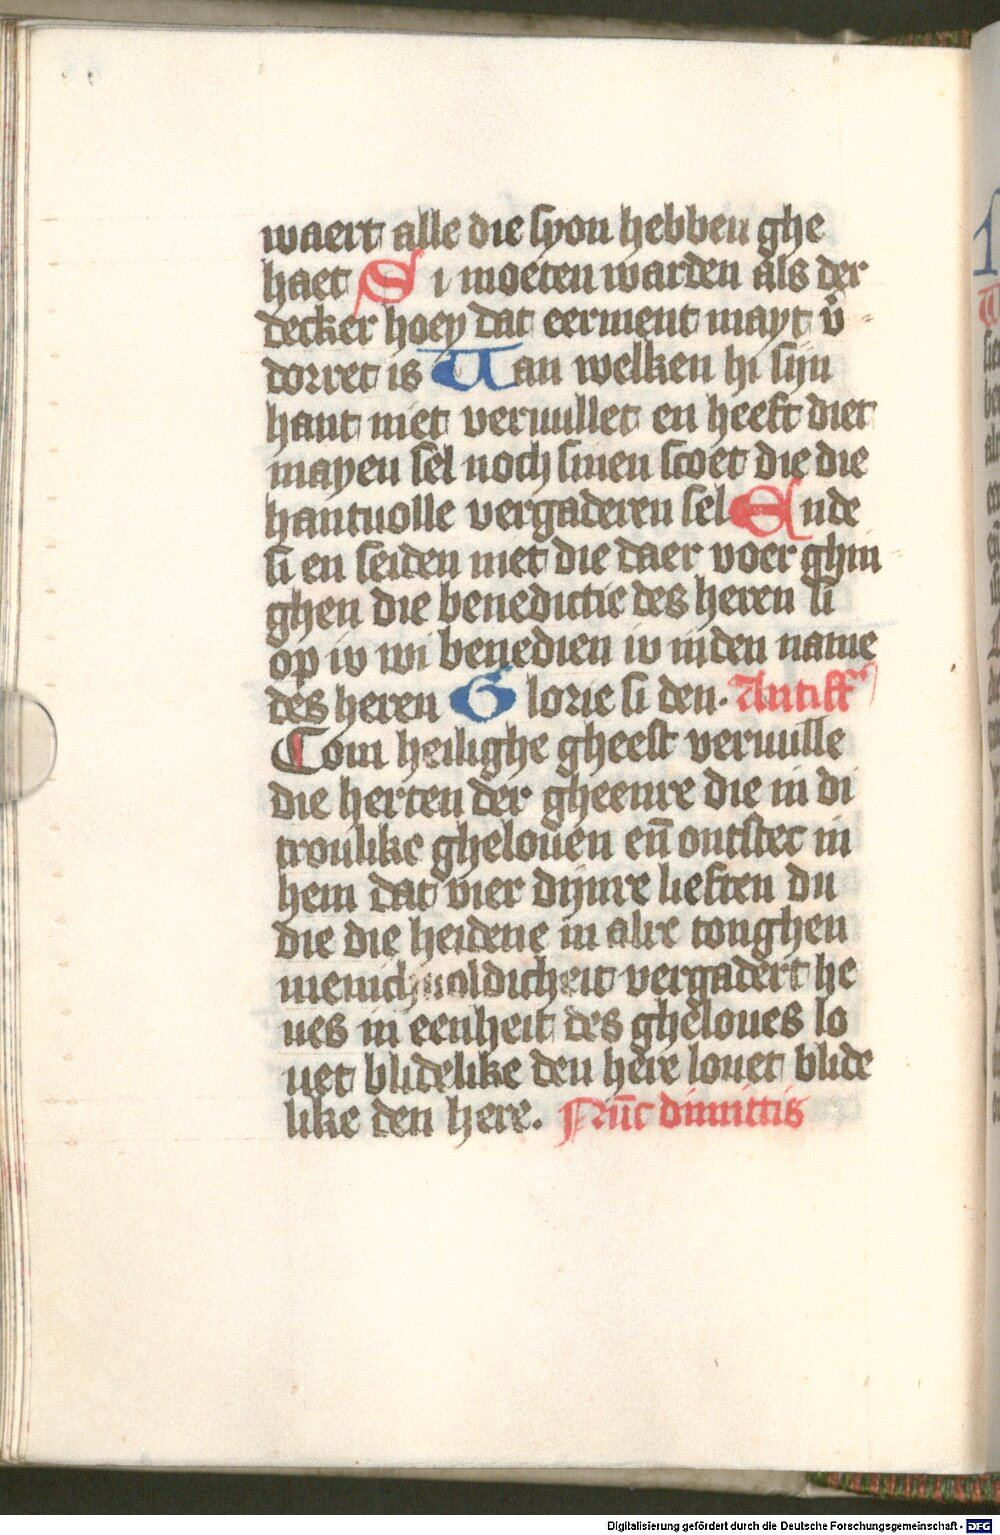 waert alle die syon hebben ghe
haet Si moeten warden als der
decker hoey dat eerment mayt v̉
dorret is Uan welken hi sijn
hant niet veruullet en heeft diet
mayen sel noch sinen scoet die die
hantuolle vergaderen sel Ende
si en seiden niet die daer voer ghin
ghen die benedictie des heren si
op iv wi benedien iv inden name
des heren Glorie si den. Antiff
Com heilighe gheest veruulle
die herten der gheenre die in di
troulike ghelouen en̄ ontstec in
hem dat vier dijnre lieften du
die die heidene in alre tonghen
menichuoldicheit vergadert he
ues in eenheit des gheloues lo
uet blidelike den here louet blide
like den here. Nūc dimittis
Digitalisierung gefördert durch die Deutsche Forschungsgemeinschaft - DFG